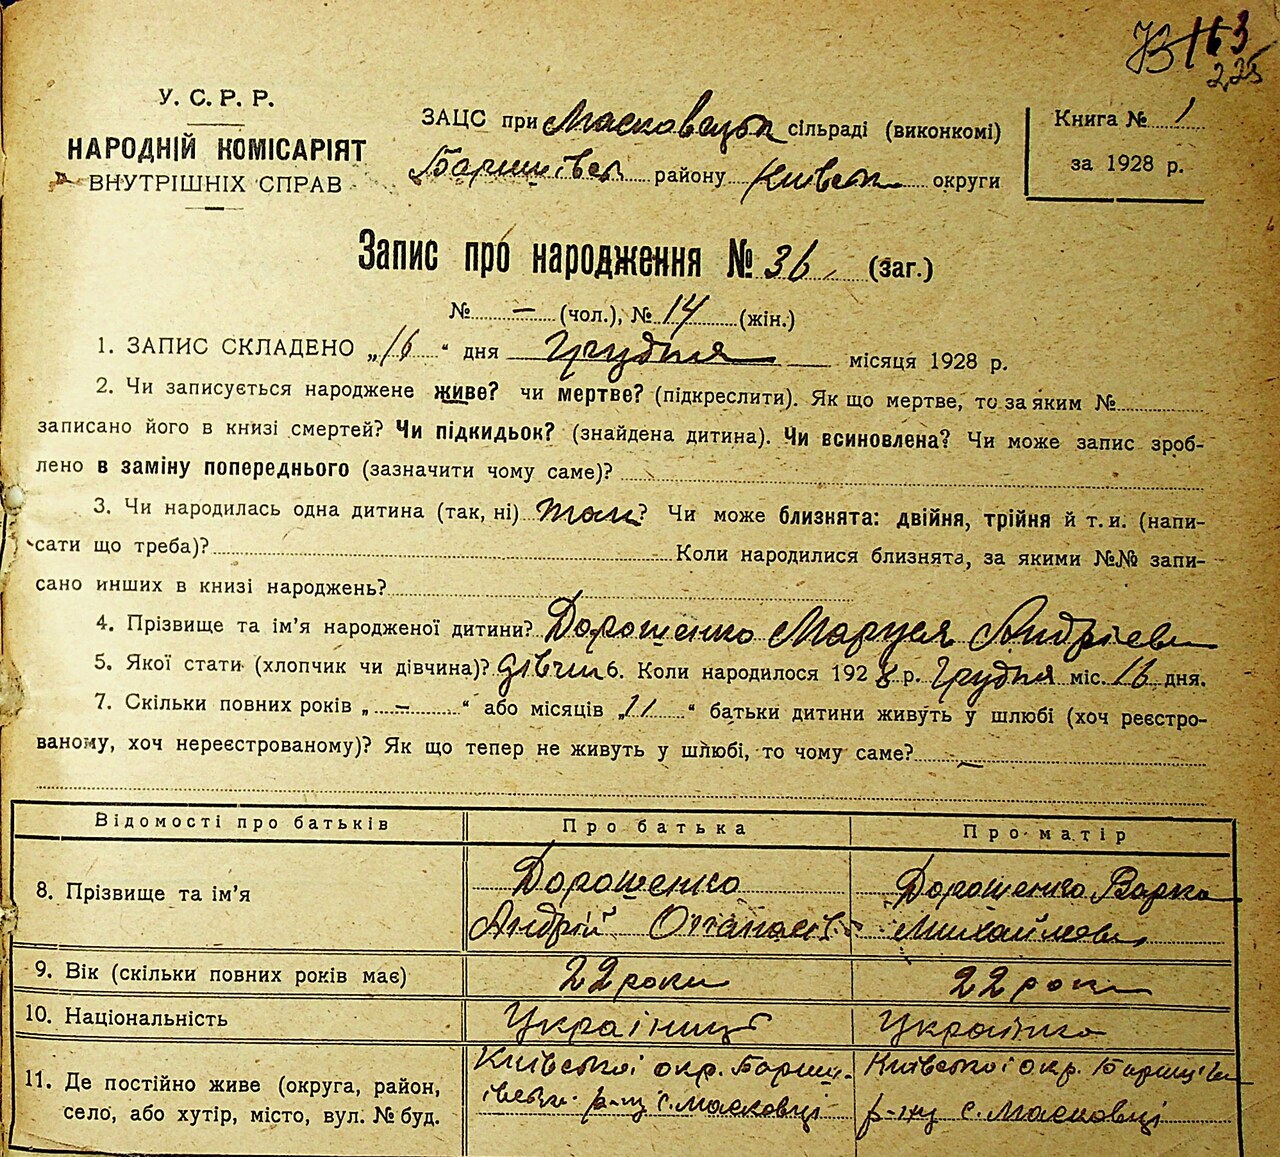 163
225
У. С. Р. Р.
НАРОДНІЙ КОМІСАРІЯТ
ВНУТРІШНІХ СПРАВ
ЗАЦС при Масковецьк сільраді (виконкомі)
Баришівськ району Київськ округи
Книга № 1
за 1928 р.
Запис про народження № 36 (заг.)
№ — (чол.), № 14 (жін.)
1. ЗАПИС СКЛАДЕНО „16“ дня Грудня місяця 1928 р.
2. Чи записується народжене живе? чи мертве? (підкреслити). Як що мертве, то за яким №
записано його в книзі смертей? Чи підкидьок? (знайдена дитина). Чи всиновлена? Чи може запис зроб-
лено в заміну попереднього (зазначити чому саме)?
3. Чи народилась одна дитина (так, ні) так? Чи може близнята: двійня, трійня й т. и. (напи-
сати що треба)? Коли народилися близнята, за якими №№ запи-
сано инших в книзі народжень?
4. Прізвище та ім’я народженої дитини? Дорошенко Маруся Андрієвн
5. Якої стати (хлопчик чи дівчина)? дівчин 6. Коли народилося 1928 р. Грудня міс. 16 дня.
7. Скільки повних років „ — “ або місяців „11“ батьки дитини живуть у шлюбі (хоч реєстро-
ваному, хоч нереєстрованому)? Як що тепер не живуть у шлюбі, то чому саме? —
Відомості про батьків Про батька Про матір
8. Прізвище та ім’я Дорошенко Андрій Опанасів Дорошенко Варка Михайловн
9. Вік (скільки повних років має) 22 роки 22 роки
10. Національність Українець Українка
11. Де постійно живе (округа, район, Київської окр. Бариш- Київської окр. Баришівськ
село, або хутір, місто, вул. № буд. івськ р-ну с. Масковці р-ну с. Масковці